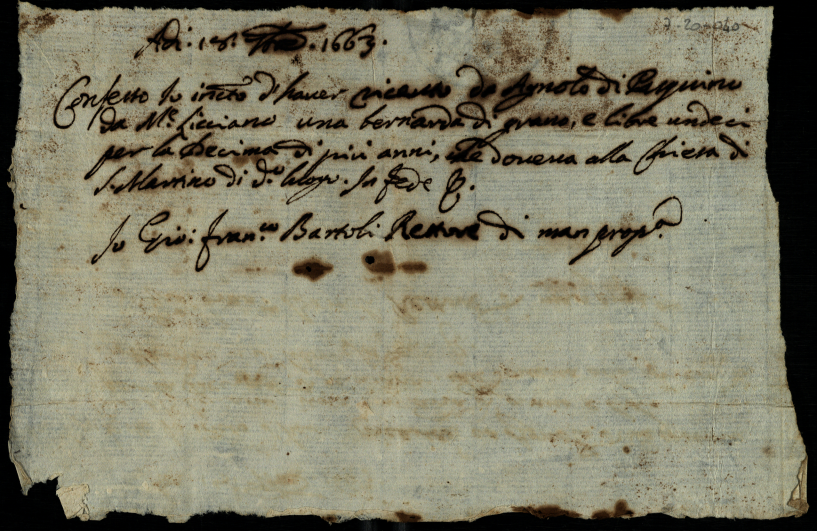 7-20-040
Adi: 18: . 1663.
Confesso Io infrto d'haver ricevuto da Agnolo di Pasquino
da Mte. Licciano una bernarda di grano, e libre undeci
per la Decima di più anni, che doveva alla Chiesa di
S. Martino di do. luogo. In fede &.
Io Gio: Franco Bartoli Rettore di man propa.